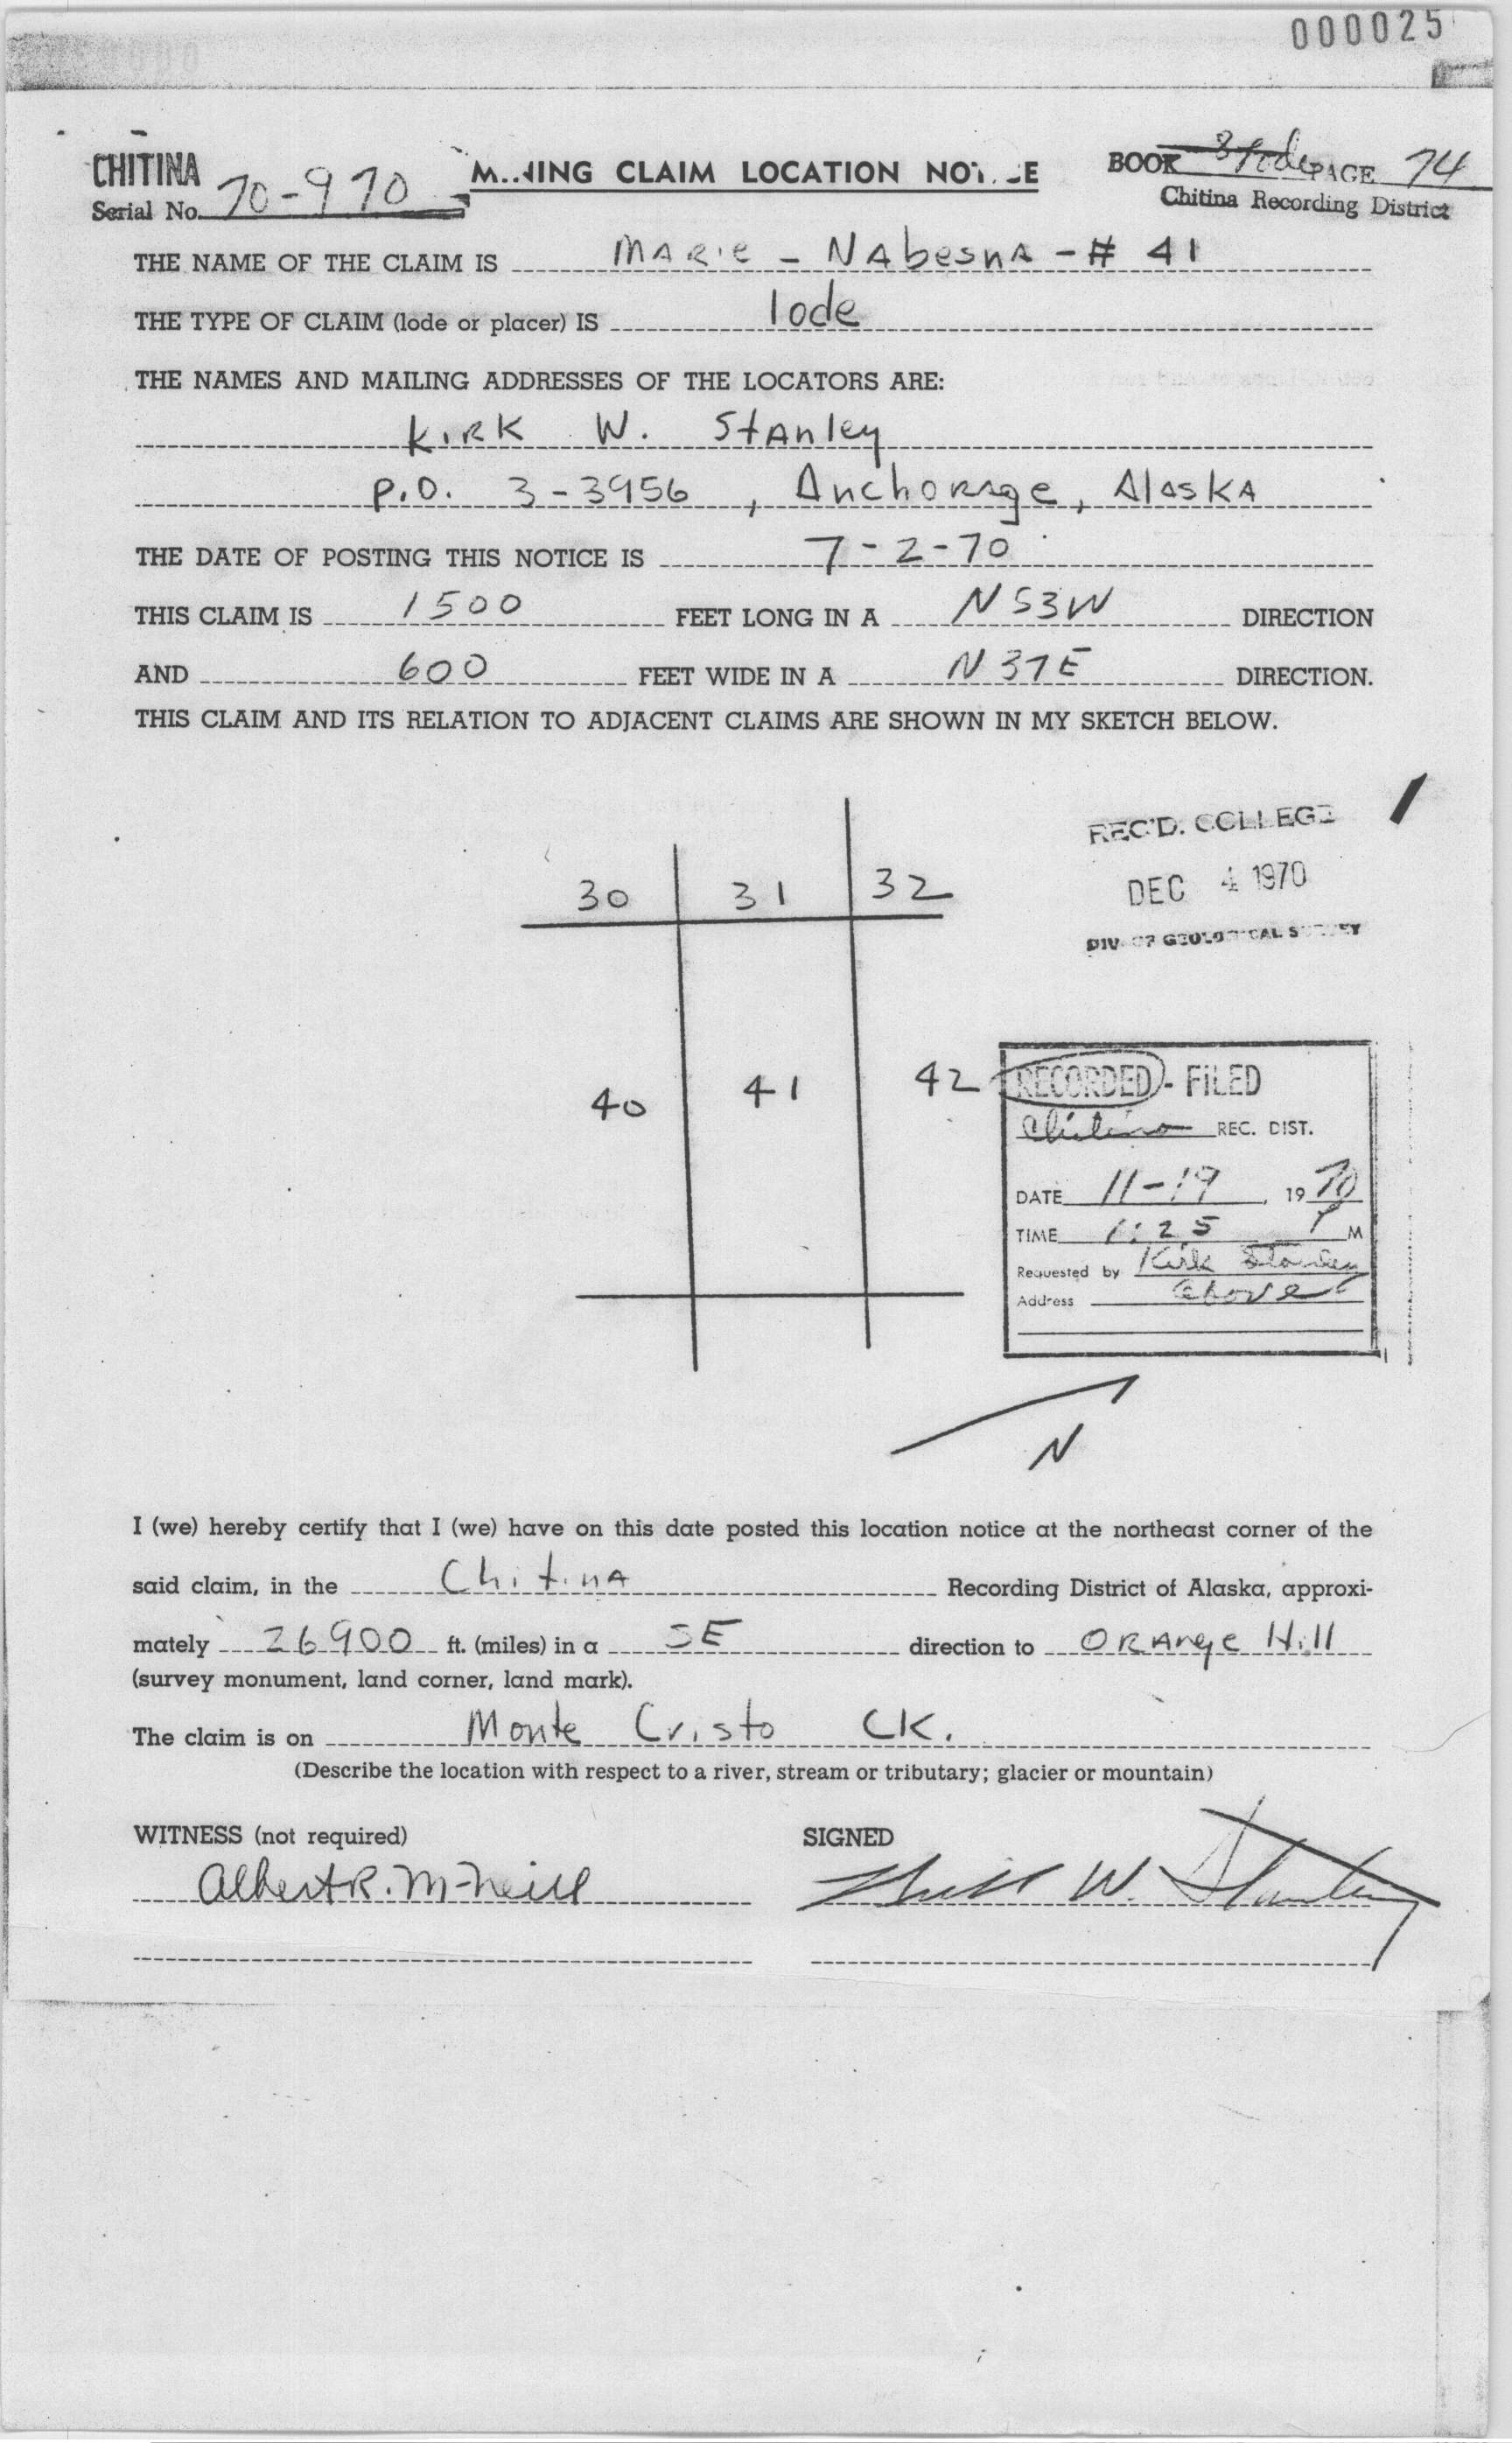 000025
CHITINA
Serial No. 70-970
MINING CLAIM LOCATION NOTICE
BOOK 8 lode PAGE 74
Chitina Recording District
THE NAME OF THE CLAIM IS MARIE - NAbesnA - # 41
THE TYPE OF CLAIM (lode or placer) IS lode
THE NAMES AND MAILING ADDRESSES OF THE LOCATORS ARE:
KIRK W. StAnley
P.O. 3-3956, AnchoRAge, AlaskA
THE DATE OF POSTING THIS NOTICE IS 7-2-70
THIS CLAIM IS 1500 FEET LONG IN A N53W DIRECTION
AND 600 FEET WIDE IN A N37E DIRECTION.
THIS CLAIM AND ITS RELATION TO ADJACENT CLAIMS ARE SHOWN IN MY SKETCH BELOW.
REC'D. COLLEGE
DEC 4 1970
DIV. OF GEOLOGICAL SURVEY
30 31 32
40 41 42
RECORDED - FILED
Chitina REC. DIST.
DATE 11-19, 1970
TIME 1:25 P M
Requested by Kirk Stanley
Address above
N
I (we) hereby certify that I (we) have on this date posted this location notice at the northeast corner of the
said claim, in the ChitinA Recording District of Alaska, approxi-
mately 26900 ft. (miles) in a SE direction to ORAnge Hill
(survey monument, land corner, land mark).
The claim is on Monte Cristo CK.
(Describe the location with respect to a river, stream or tributary; glacier or mountain)
WITNESS (not required)
SIGNED
Albert R. McNeill
Kirk W. Stanley